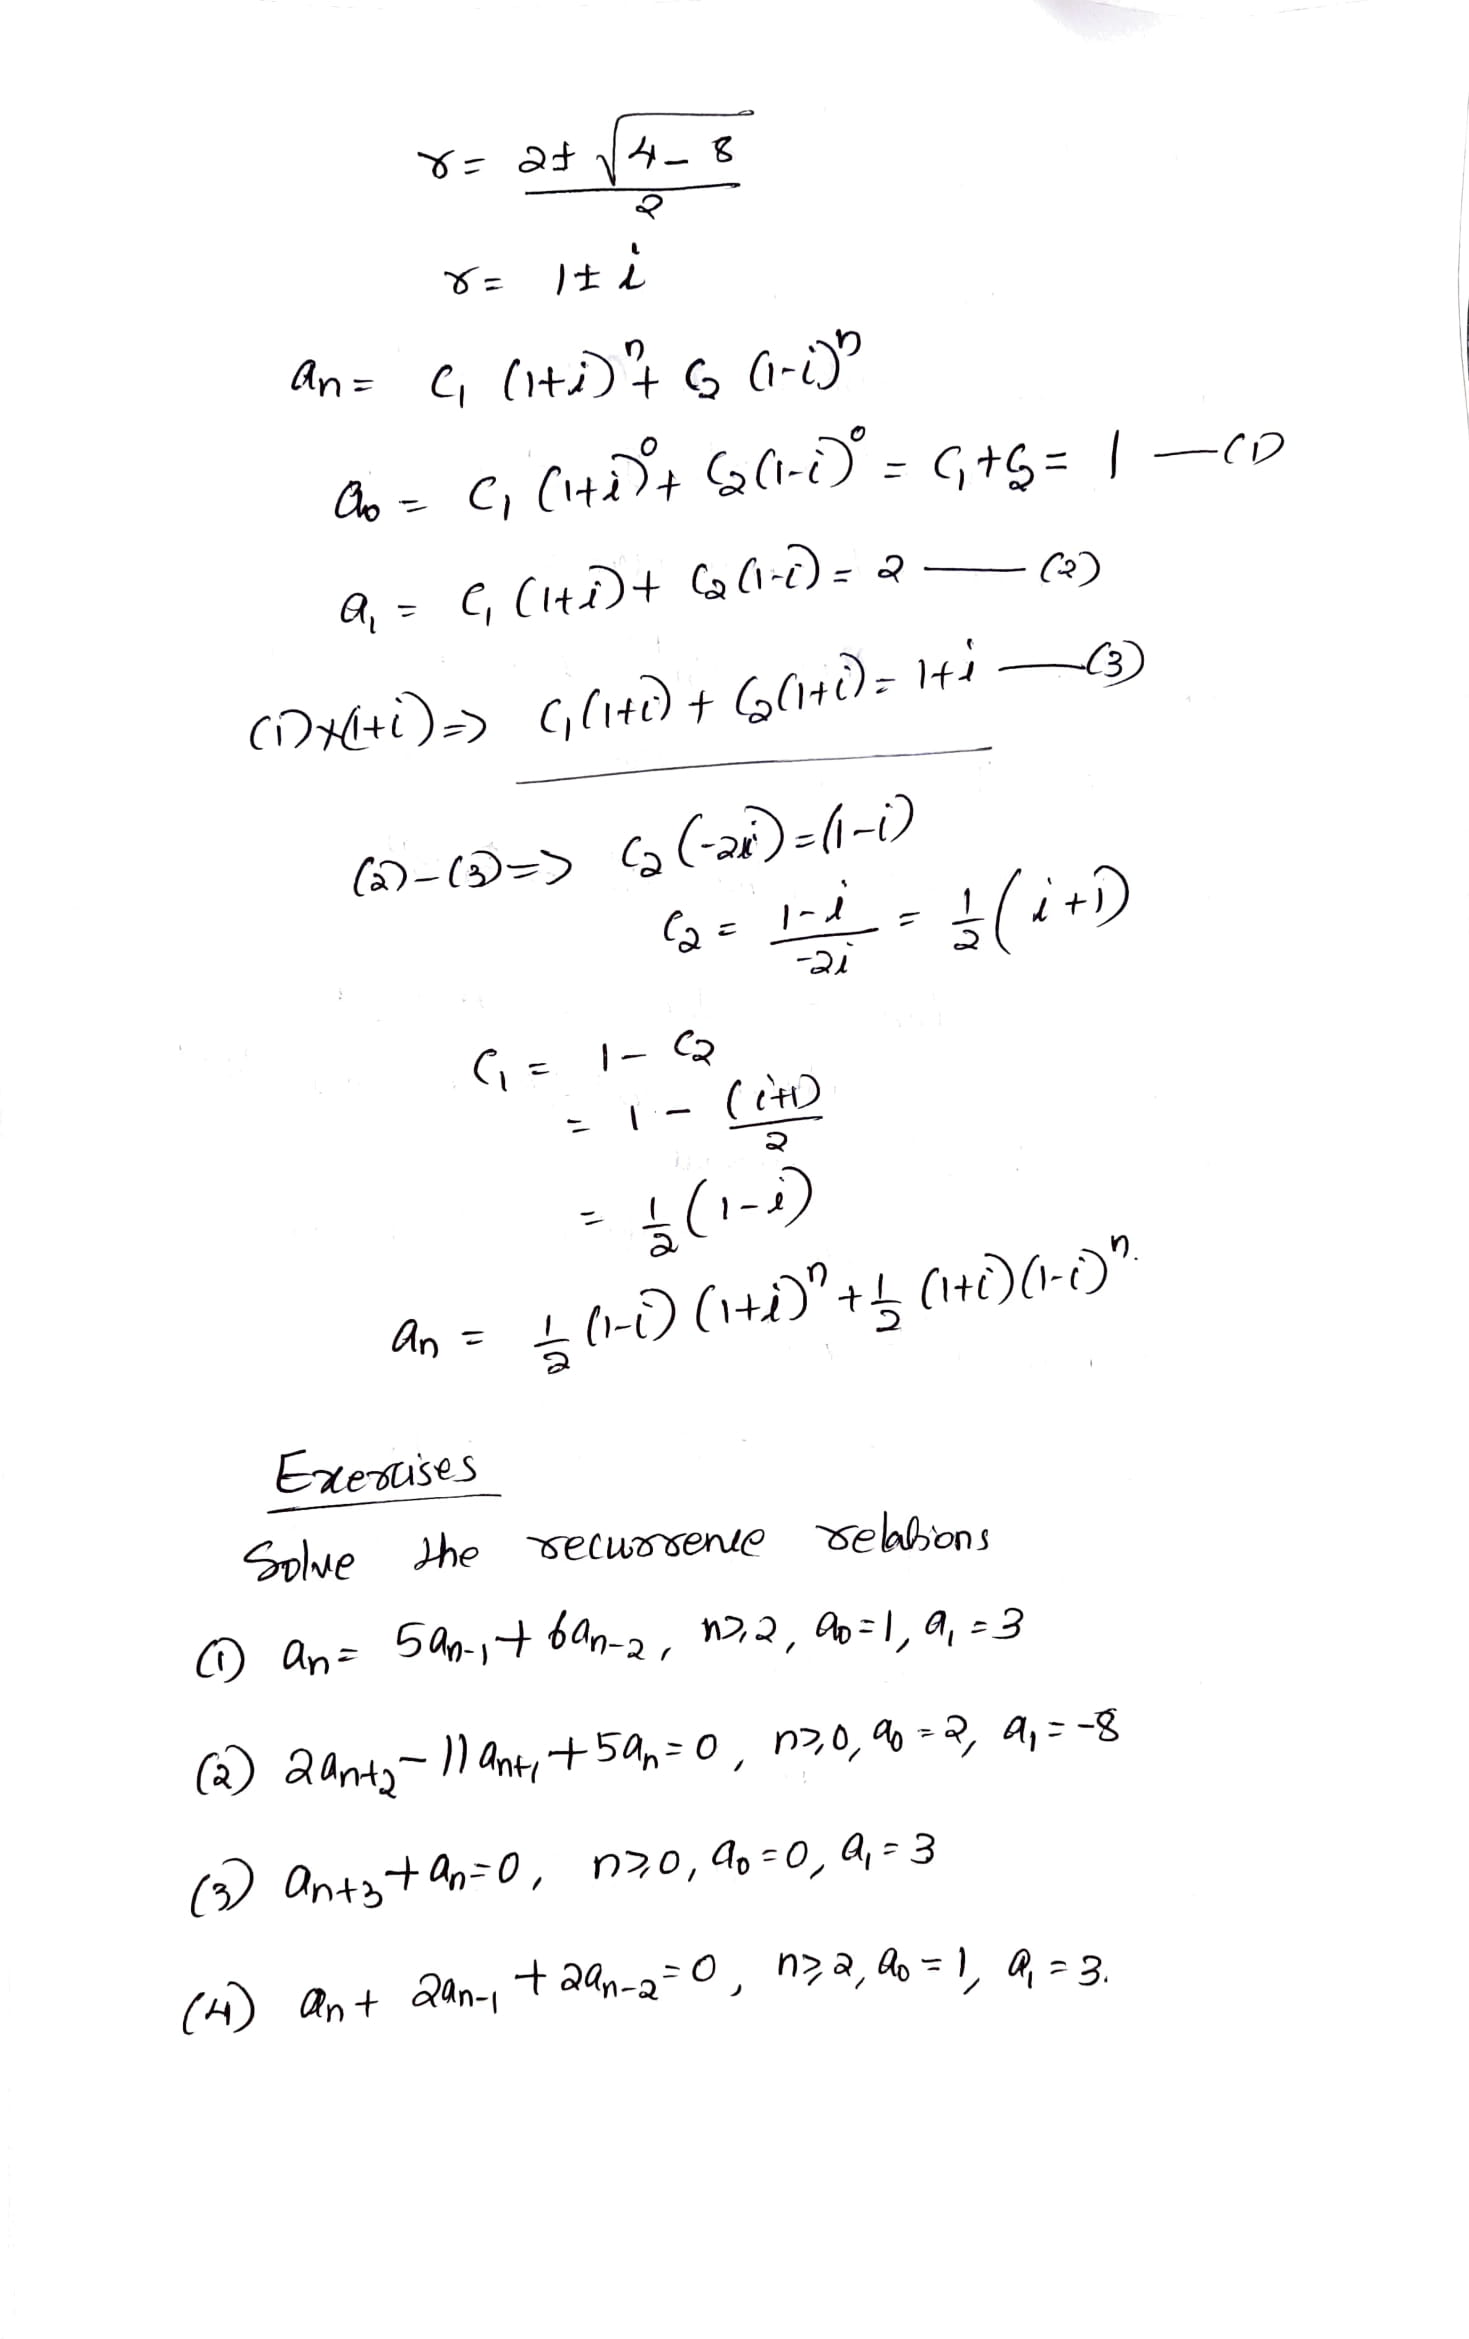 r = (2 ± √(4 - 8)) / 2
r = 1 ± i
an = C1 (1+i)^n + C2 (1-i)^n
a0 = C1 (1+i)^0 + C2 (1-i)^0 = C1 + C2 = 1 — (1)
a1 = C1 (1+i) + C2 (1-i) = 2 — (2)
(1)×(1+i) => C1(1+i) + C2(1+i) = 1+i — (3)
(2)-(3) => C2 (-2i) = (1-i)
C2 = (1-i)/(-2i) = 1/2 (i+1)
C1 = 1 - C2
= 1 - (i+1)/2
= 1/2 (1-i)
an = 1/2 (1-i) (1+i)^n + 1/2 (1+i)(1-i)^n.
Exercises
Solve the recurrence relations
(1) an = 5an-1 + 6an-2, n≥2, a0=1, a1=3
(2) 2an+2 - 11an+1 + 5an = 0, n≥0, a0=2, a1=-8
(3) an+3 + an = 0, n≥0, a0=0, a1=3
(4) an + 2an-1 + 2an-2 = 0, n≥2, a0=1, a1=3.